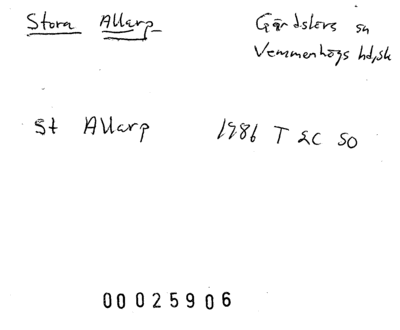 Stora Allarp
Gärdslövs sn
Vemmenhögs hd, sk
St Allarp 1986 T 2C SO
00025906